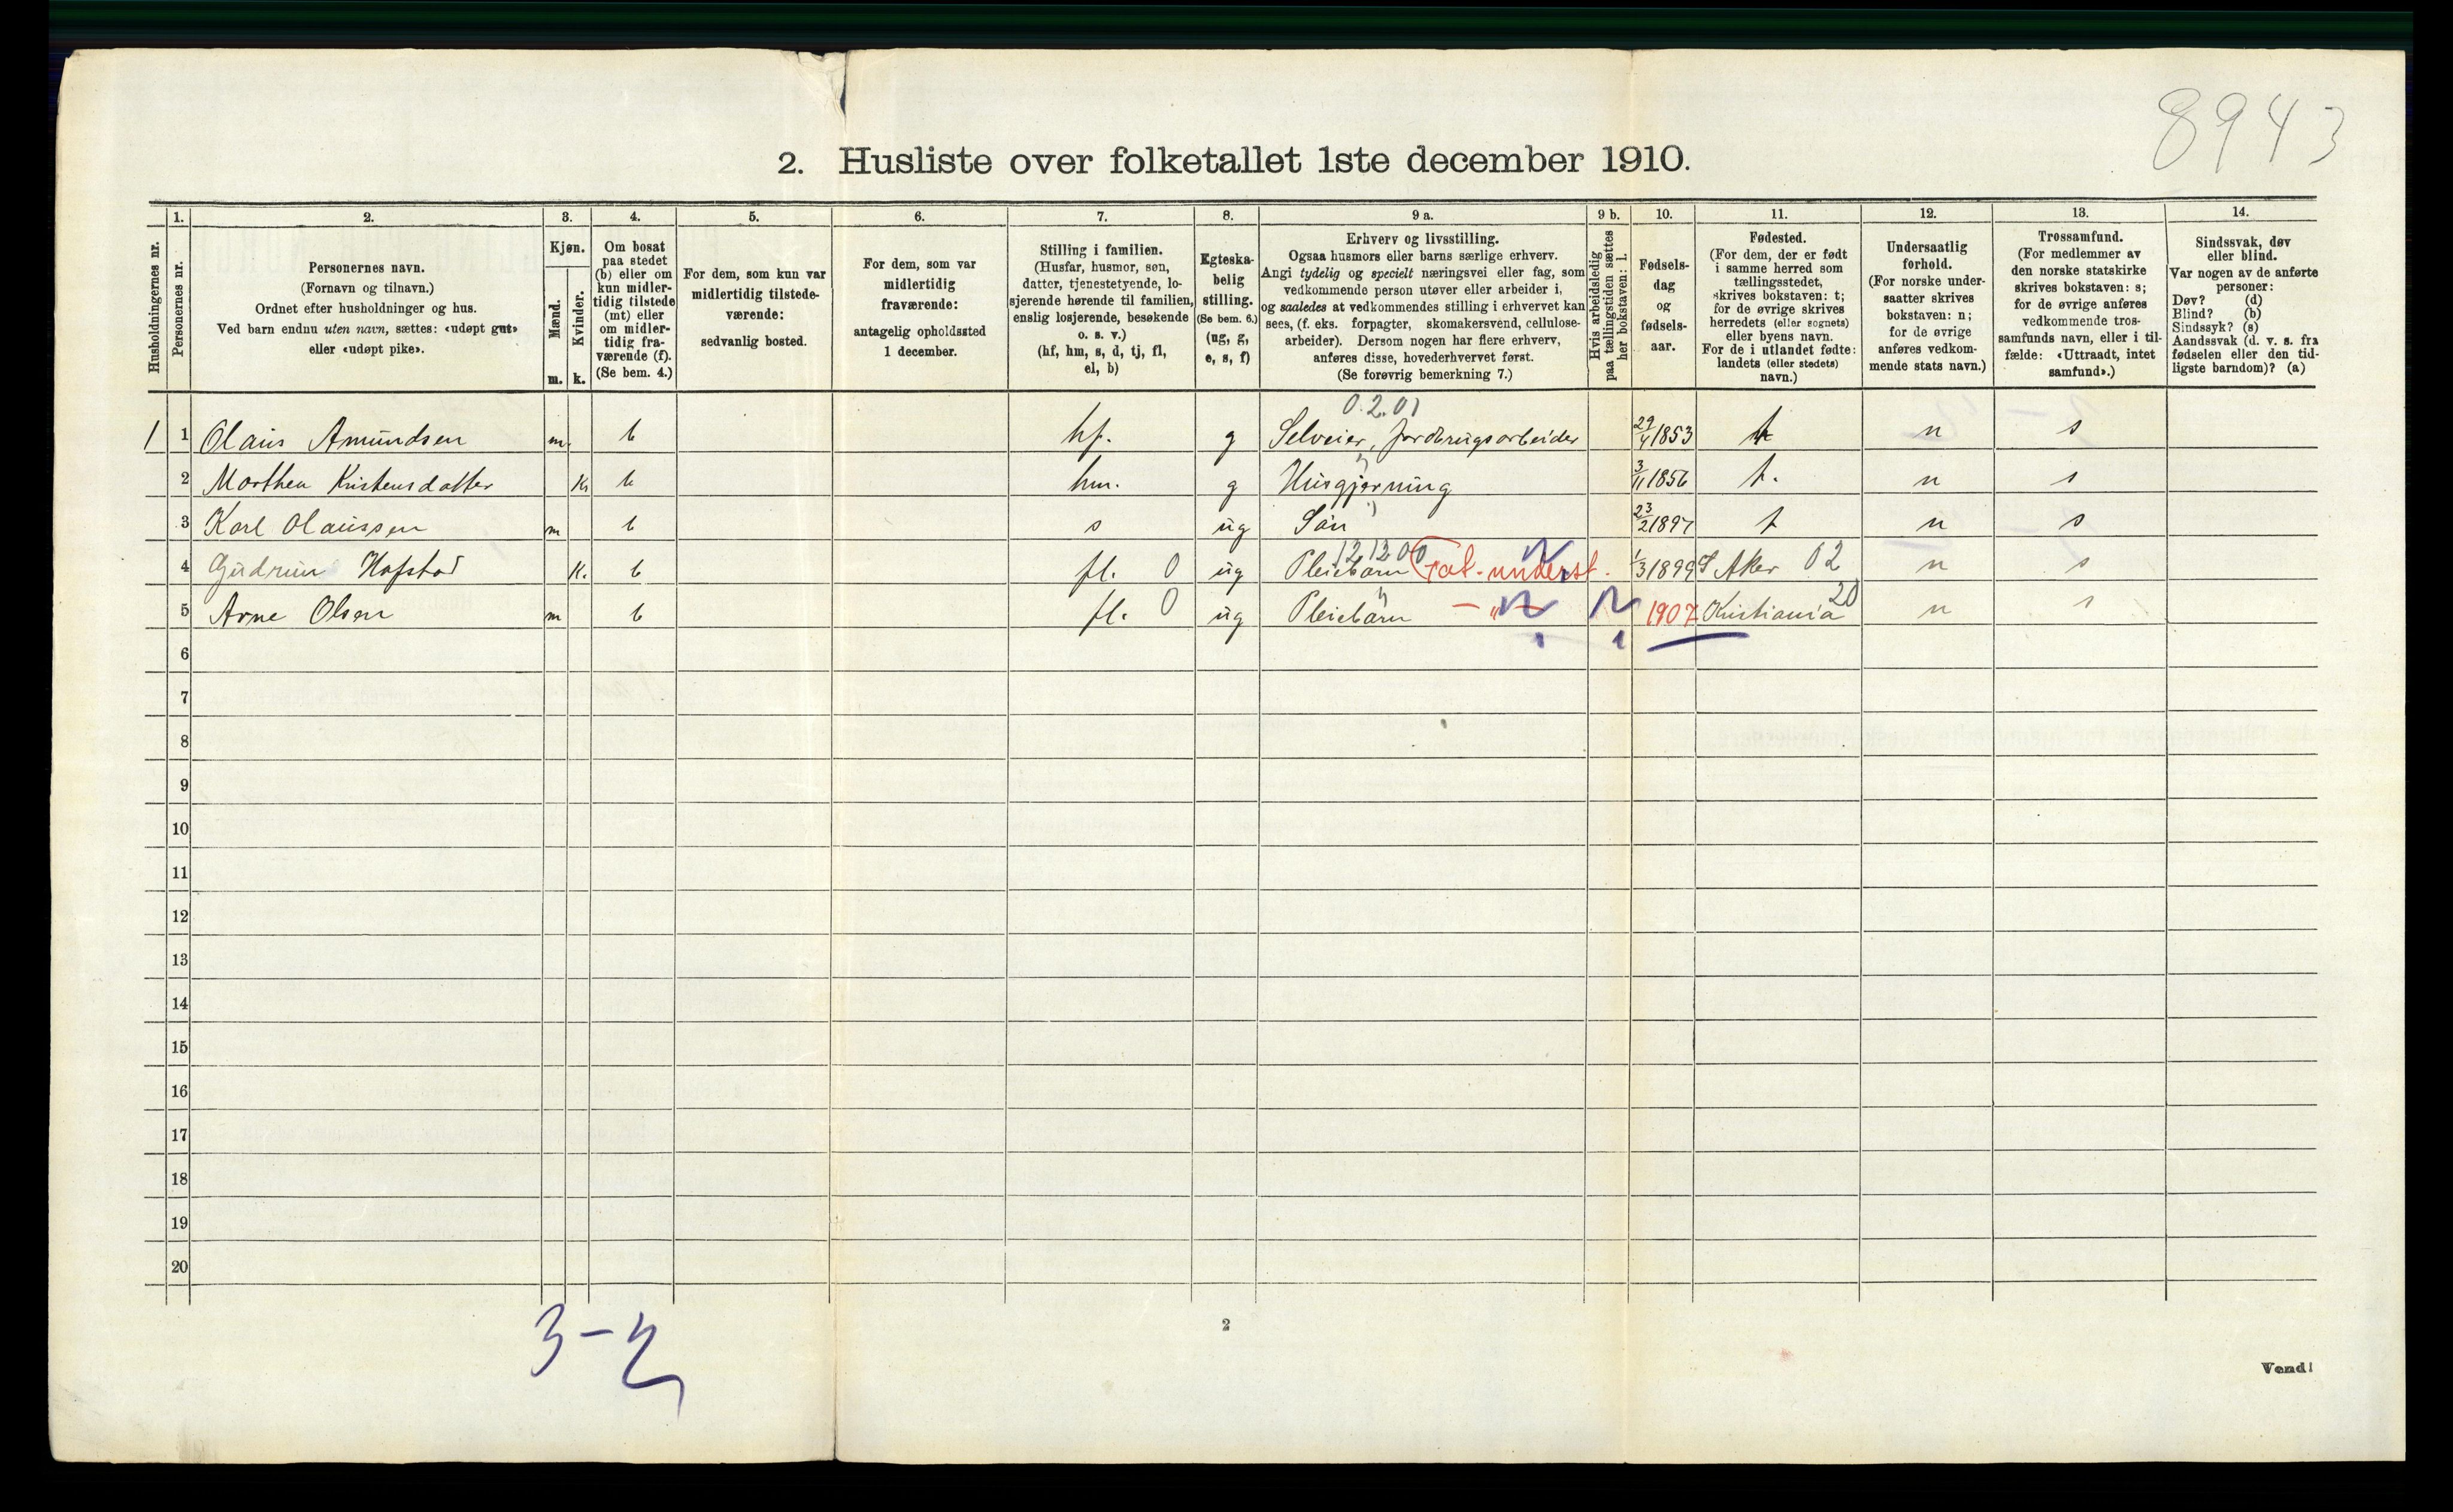 8943
2. Husliste over folketallet 1ste december 1910.
Husholdningernes nr.
1.
Personernes nr.
2.
Personernes navn.
(Fornavn og tilnavn.)
Ordnet efter husholdninger og hus.
Ved barn endnu uten navn, sættes: «udøpt gut»
eller «udøpt pike».
3.
Kjøn.
Mænd.
m.
Kvinder.
k.
4.
Om bosat
paa stedet
(b) eller om
kun midler-
tidig tilstede
(mt) eller
om midler-
tidig fra-
værende (f).
(Se bem. 4.)
5.
For dem, som kun var
midlertidig tilstede-
værende:
sedvanlig bosted.
6.
For dem, som var
midlertidig
fraværende:
antagelig opholdssted
1 december.
7.
Stilling i familien.
(Husfar, husmor, søn,
datter, tjenestetyende, lo-
sjerende hørende til familien,
enslig losjerende, besøkende
o. s. v.)
(hf, hm, s, d, tj, fl,
el, b)
8.
Egteska-
belig
stilling.
(Se bem. 6.)
(ug, g,
e, s, f)
9 a.
Erhverv og livsstilling.
Ogsaa husmors eller barns særlige erhverv.
Angi tydelig og specielt næringsvei eller fag, som
vedkommende person utøver eller arbeider i,
og saaledes at vedkommendes stilling i erhvervet kan
sees, (f. eks. forpagter, skomakersvend, cellulose-
arbeider). Dersom nogen har flere erhverv,
anføres disse, hovederhvervet først.
(Se forøvrig bemerkning 7.)
9 b.
Hvis arbeidsledig
paa tællingstiden sættes
her bokstaven: l.
10.
Fødsels-
dag
og
fødsels-
aar.
11.
Fødested.
(For dem, der er født
i samme herred som
tællingsstedet,
skrives bokstaven: t;
for de øvrige skrives
herredets (eller sognets)
eller byens navn.
For de i utlandet fødte:
landets (eller stedets)
navn.)
12.
Undersaatlig
forhold.
(For norske under-
saatter skrives
bokstaven: n;
for de øvrige
anføres vedkom-
mende stats navn.)
13.
Trossamfund.
(For medlemmer av
den norske statskirke
skrives bokstaven: s;
for de øvrige anføres
vedkommende tros-
samfunds navn, eller i til-
fælde: «Uttraadt, intet
samfund».)
14.
Sindssvak, døv
eller blind.
Var nogen av de anførte
personer:
Døv? (d)
Blind? (b)
Sindssyk? (s)
Aandssvak (d. v. s. fra
fødselen eller den tid-
ligste barndom)? (a)
0.2.01
1 1 Olaus Amundsen m. b hf. g Selveier, jordbrugsarbeider 29/4 1853 t n s
2 Marthea Kristensdatter k b hm. g " Husgjerning 3/11 1856 t. n s
3 Karl Olaussen m b s ug Søn " 23/2 1897 t n s
4 Gudrun Hofstad K. b fl. 0 ug Pleiebarn 121200 Fat. underst. 1/3 1899 S Aker 02 n s
5 Arne Olsen m b fl. 0 ug Pleiebarn " — " — 1907 Kristiania 20 n s
6
7
8
9
10
11
12
13
14
15
16
17
18
19
20
3-2
2
Vend!